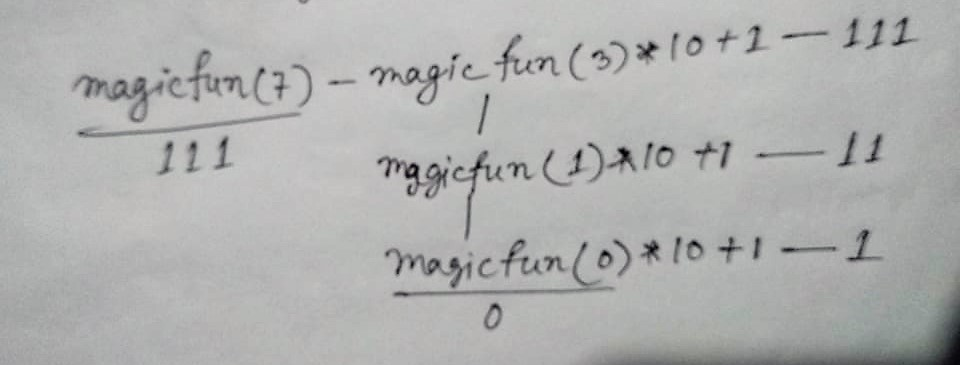 magicfun(7) - magic fun (3)*10+1 — 111
111
magicfun (1)*10 +1 — 11
magicfun(0)*10+1 — 1
0